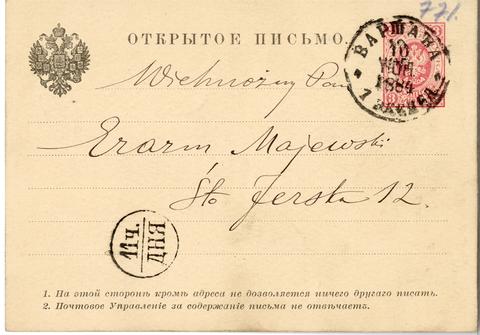 771.
ОТКРЫТОЕ ПИСЬМО.
ВАРШАВА
10
ІЮН
1884
Wielmożny Pan
Erazm Majewski
Śto Jerska 12.
11 Ч.
ДНЯ
1. На этой сторонѣ кромѣ адреса не дозволяется ничего другаго писать.
2. Почтовое Управленіе за содержаніе письма не отвѣчаетъ.